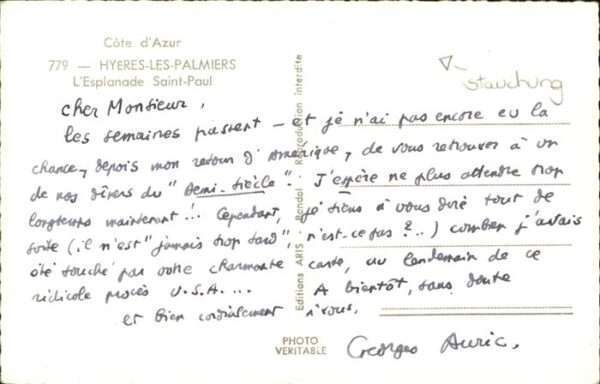 Côte d'Azur
779 — HYERES-LES-PALMIERS
L'Esplanade Saint-Paul
Stauchung
Cher Monsieur,
les semaines passent — et je n'ai pas encore eu la
chance, depuis mon retour d'Amérique, de vous retrouver à un
de nos dîners du "Demi-siècle". J'espère ne plus attendre trop
longtemps maintenant!.. Cependant, je tiens à vous dire tout de
suite (il n'est "jamais trop tard", n'est-ce pas?..) combien j'avais
été touché par votre charmante carte, au lendemain de ce
ridicule procès U.S.A....
A bientôt, sans doute
et bien cordialement à vous.
Georges Auric.
Editions ARIS Bandol Reproduction interdite
PHOTO
VERITABLE